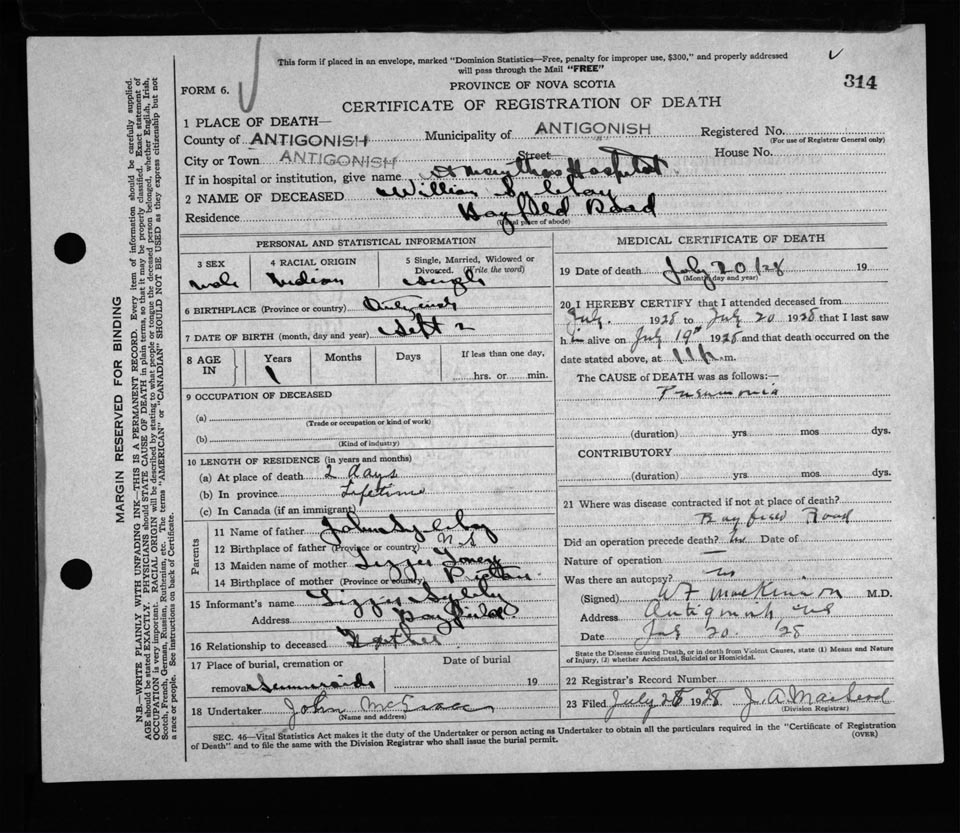 This form if placed in an envelope, marked "Dominion Statistics—Free, penalty for improper use, $300," and properly addressed
will pass through the Mail "FREE"
314
FORM 6.
PROVINCE OF NOVA SCOTIA
CERTIFICATE OF REGISTRATION OF DEATH
1 PLACE OF DEATH—
County of ANTIGONISH Municipality of ANTIGONISH Registered No.
(For use of Registrar General only)
City or Town ANTIGONISH Street House No.
If in hospital or institution, give name St Marthas Hospital
2 NAME OF DECEASED William Syliboy
Residence Bayfield Road
(Usual place of abode)
PERSONAL AND STATISTICAL INFORMATION
3 SEX 4 RACIAL ORIGIN 5 Single, Married, Widowed or
Divorced. (Write the word)
male Indian single
6 BIRTHPLACE (Province or country) Antigonish
7 DATE OF BIRTH (month, day and year) Sept 2
8 AGE IN Years Months Days If less than one day,
1 hrs. or min.
9 OCCUPATION OF DECEASED
(a)
(Trade or occupation or kind of work)
(b)
(Kind of industry)
10 LENGTH OF RESIDENCE (in years and months)
(a) At place of death 2 days
(b) In province Lifetime
(c) In Canada (if an immigrant)
Parents
11 Name of father John Syliboy
12 Birthplace of father (Province or country) N.S
13 Maiden name of mother Lizzie
14 Birthplace of mother (Province or country) Pictou
15 Informant's name Lizzie Syliboy
Address Bayfield
16 Relationship to deceased Mother
17 Place of burial, cremation or Date of burial
removal Summerside 19
18 Undertaker John McIsaac
(Name and address)
MEDICAL CERTIFICATE OF DEATH
19 Date of death July 20/28 19
(Month, day and year)
20 I HEREBY CERTIFY that I attended deceased from
July. 1928 to July 20 1928 that I last saw
him alive on July 19th 1928 and that death occurred on the
date stated above, at 11 p.m.
The CAUSE OF DEATH was as follows:—
Pneumonia
(duration) yrs mos dys.
CONTRIBUTORY
(duration) yrs. mos. dys.
21 Where was disease contracted if not at place of death?
Bayfield Road
Did an operation precede death? no Date of
Nature of operation —
Was there an autopsy? no
(Signed) W F MacKinnon M.D.
Address Antigonish NS
Date July 20. '28
State the Disease causing Death, or in death from Violent Causes, state (1) Means and Nature
of Injury, (2) whether Accidental, Suicidal or Homicidal.
22 Registrar's Record Number
23 Filed July 28 1928 J. A. MacLeod
(Division Registrar)
SEC. 46—Vital Statistics Act makes it the duty of the Undertaker or person acting as Undertaker to obtain all the particulars required in the "Certificate of Registration
of Death" and to file the same with the Division Registrar who shall issue the burial permit. (OVER)
MARGIN RESERVED FOR BINDING
N.B.—WRITE PLAINLY WITH UNFADING INK—THIS IS A PERMANENT RECORD. Every item of information should be carefully supplied.
AGE should be stated EXACTLY. PHYSICIANS should STATE CAUSE OF DEATH in plain terms, so that it may be properly classified. Exact statement of
OCCUPATION is very important. RACIAL ORIGIN will be described by stating to what people or tongue the deceased person belonged, whether English, Irish,
Scotch, French, German, Russian, Ruthenian, etc. The terms "AMERICAN" or "CANADIAN" SHOULD NOT BE USED as they express citizenship but not
a race or people. See instructions on back of Certificate.